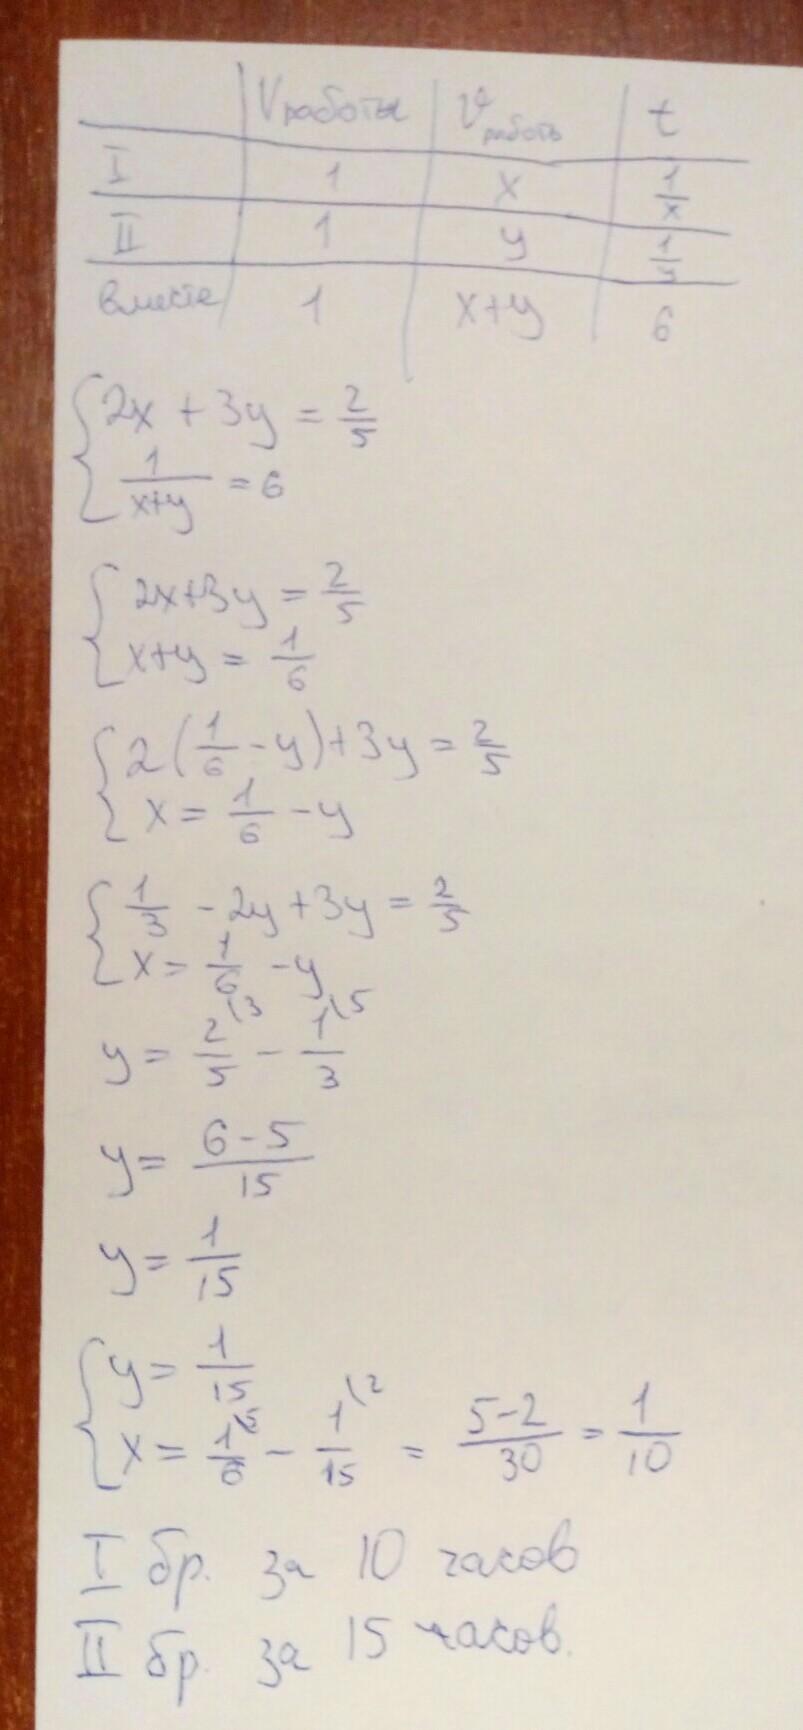 Vработы | υработы | t
I | 1 | x | 1/x
II | 1 | y | 1/y
вместе | 1 | x+y | 6
{ 2x + 3y = 2/5
1/(x+y) = 6
{ 2x+3y = 2/5
x+y = 1/6
{ 2(1/6 - y)+3y = 2/5
x = 1/6 - y
{ 1/3 - 2y + 3y = 2/5
x = 1/6 - y
y = 2/5 \3 - 1/3 \5
y = (6-5)/15
y = 1/15
{ y = 1/15
x = 1/6 \5 - 1/15 \2 = (5-2)/30 = 1/10
I бр. за 10 часов
II бр. за 15 часов.